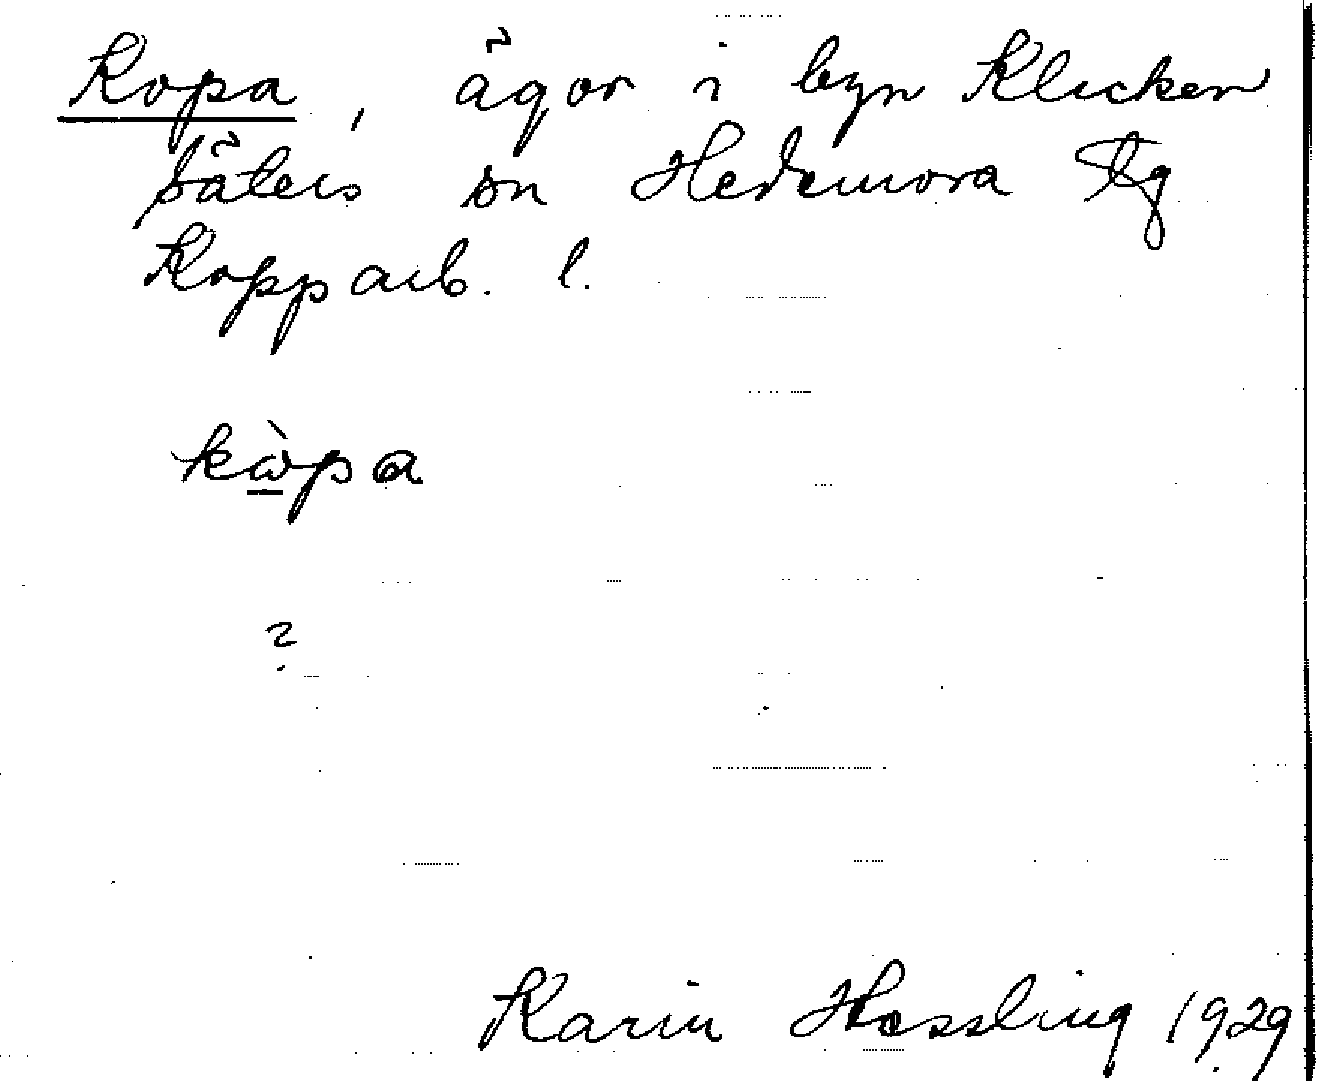 Kopa, ägor i byn Klicken
Säters sn Hedemora tg
Kopparb. l.
kὼpa
?
Karin Hessling 1929